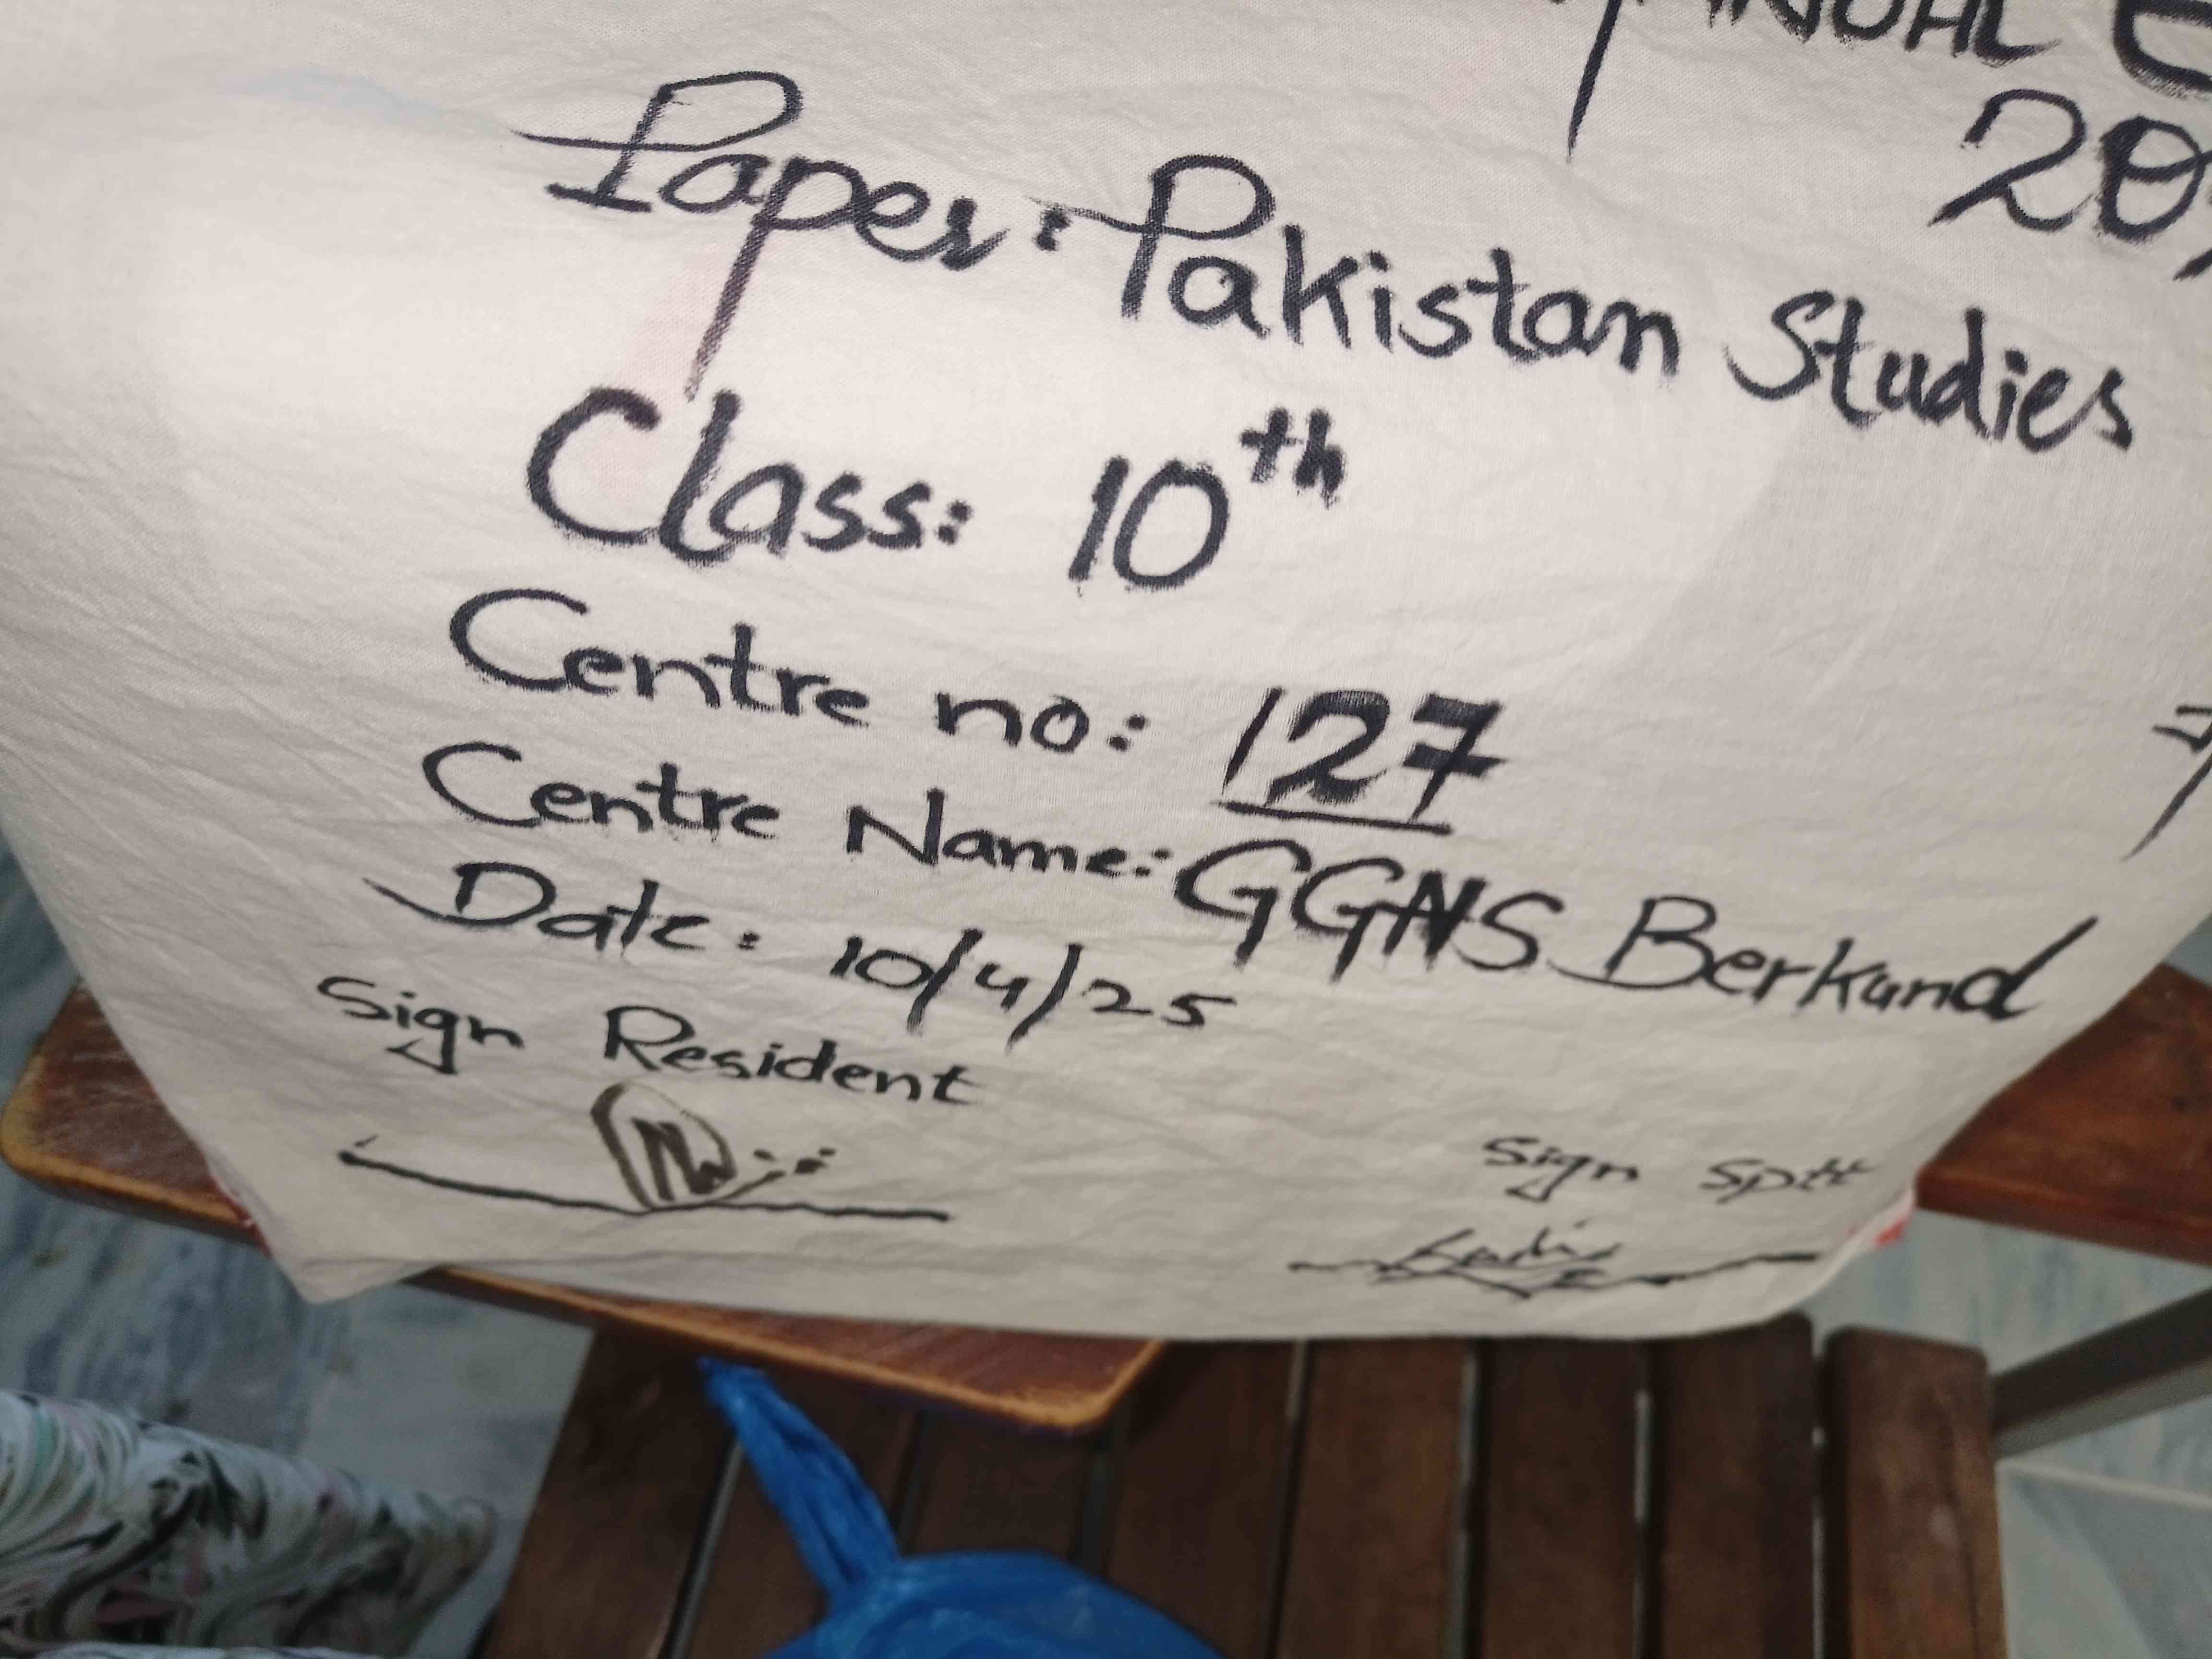 ANNUAL
Paper: Pakistan Studies
Class: 10th
Centre no: 127
Centre Name: GGNS Berkund
Date: 10/4/25
Sign Resident
Sign Sptt